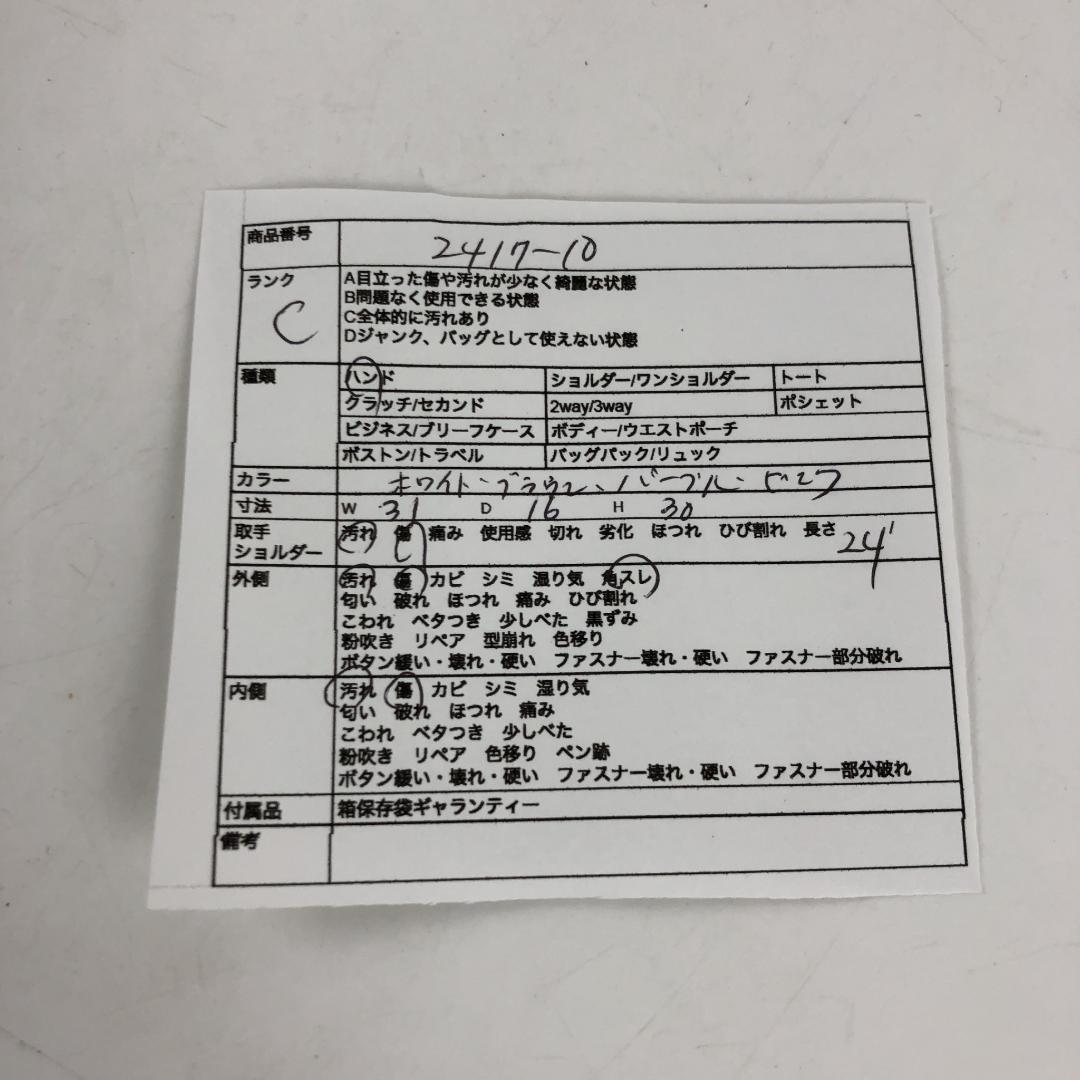 商品番号 2417-10
ランク C
A目立った傷や汚れが少なく綺麗な状態
B問題なく使用できる状態
C全体的に汚れあり
Dジャンク、バッグとして使えない状態
種類 ハンド ショルダー/ワンショルダー トート
クラッチ/セカンド 2way/3way ポシェット
ビジネス/ブリーフケース ボディー/ウエストポーチ
ボストン/トラベル バッグパック/リュック
カラー ホワイト・ブラウン、パープル・ピンク
寸法 W 31 D 16 H 30
取手 汚れ 傷 痛み 使用感 切れ 劣化 ほつれ ひび割れ 長さ 24
ショルダー
外側 汚れ 傷 カビ シミ 湿り気 角スレ
匂い 破れ ほつれ 痛み ひび割れ
こわれ ベタつき 少しべた 黒ずみ
粉吹き リペア 型崩れ 色移り
ボタン緩い・壊れ・硬い ファスナー壊れ・硬い ファスナー部分破れ
内側 汚れ 傷 カビ シミ 湿り気
匂い 破れ ほつれ 痛み
こわれ ベタつき 少しべた
粉吹き リペア 色移り ペン跡
ボタン緩い・壊れ・硬い ファスナー壊れ・硬い ファスナー部分破れ
付属品 箱保存袋ギャランティー
備考